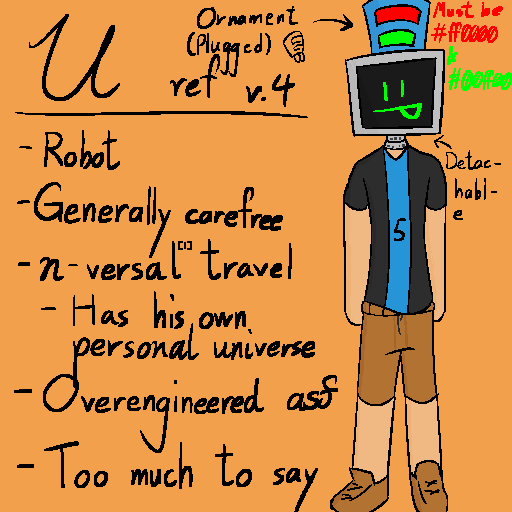 U
ref v.4
Ornament
(Plugged)
Must be
#ff0000
&
#00ff00
Detac-
habl-
e
5
- Robot
- Generally carefree
- n-versal[1] travel
- Has his own
personal universe
- Overengineered asf
- Too much to say